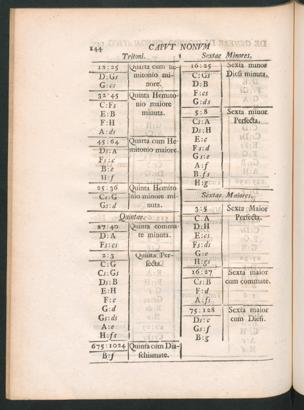 144 CAPVT NONVM
Tritoni.
18:25 Quarta cum
mitonio mi-
nore.
D:Gs
G:cs
32:45 Quinta Hemito-
nio maiore
minuta.
C:Fs
E:B
F:H
A:ds
45:64 Quarta cum He-
mitonio maiore.
Ds:A
Fs:c
B:e
H:f
25:36 Quinta Hemito
nio minore mi-
nuta.
Cs:G
Gs:d
Quintae.
27:40 Quinta commu-
te minuta.
D:A
Fs:cs
2:3 Quinta Per-
fecta.
C:G
Cs:Gs
Ds:B
E:H
F:c
G:d
Gs:ds
A:e
H:fs
675:1024 Quinta cum Dia-
schismate.
B:f
Sextae Minores.
16:25 Sexta minor
Diesi minuta.
C:Gs
D:B
F:cs
G:ds
5:8 Sexta minor
Perfecta.
Cs:A
Ds:H
E:c
Fs:d
Gs:e
A:f
B:fs
H:g
Sextae Maiores.
3:5 Sexta Maior
Perfecta.
C:A
D:H
E:cs
Fs:ds
G:e
H:gs
16:27 Sexta maior
cum commate.
Cs:B
F:d
A:fs
75:128 Sexta maior
cum Diesi.
Ds:c
Gs:f
B:g